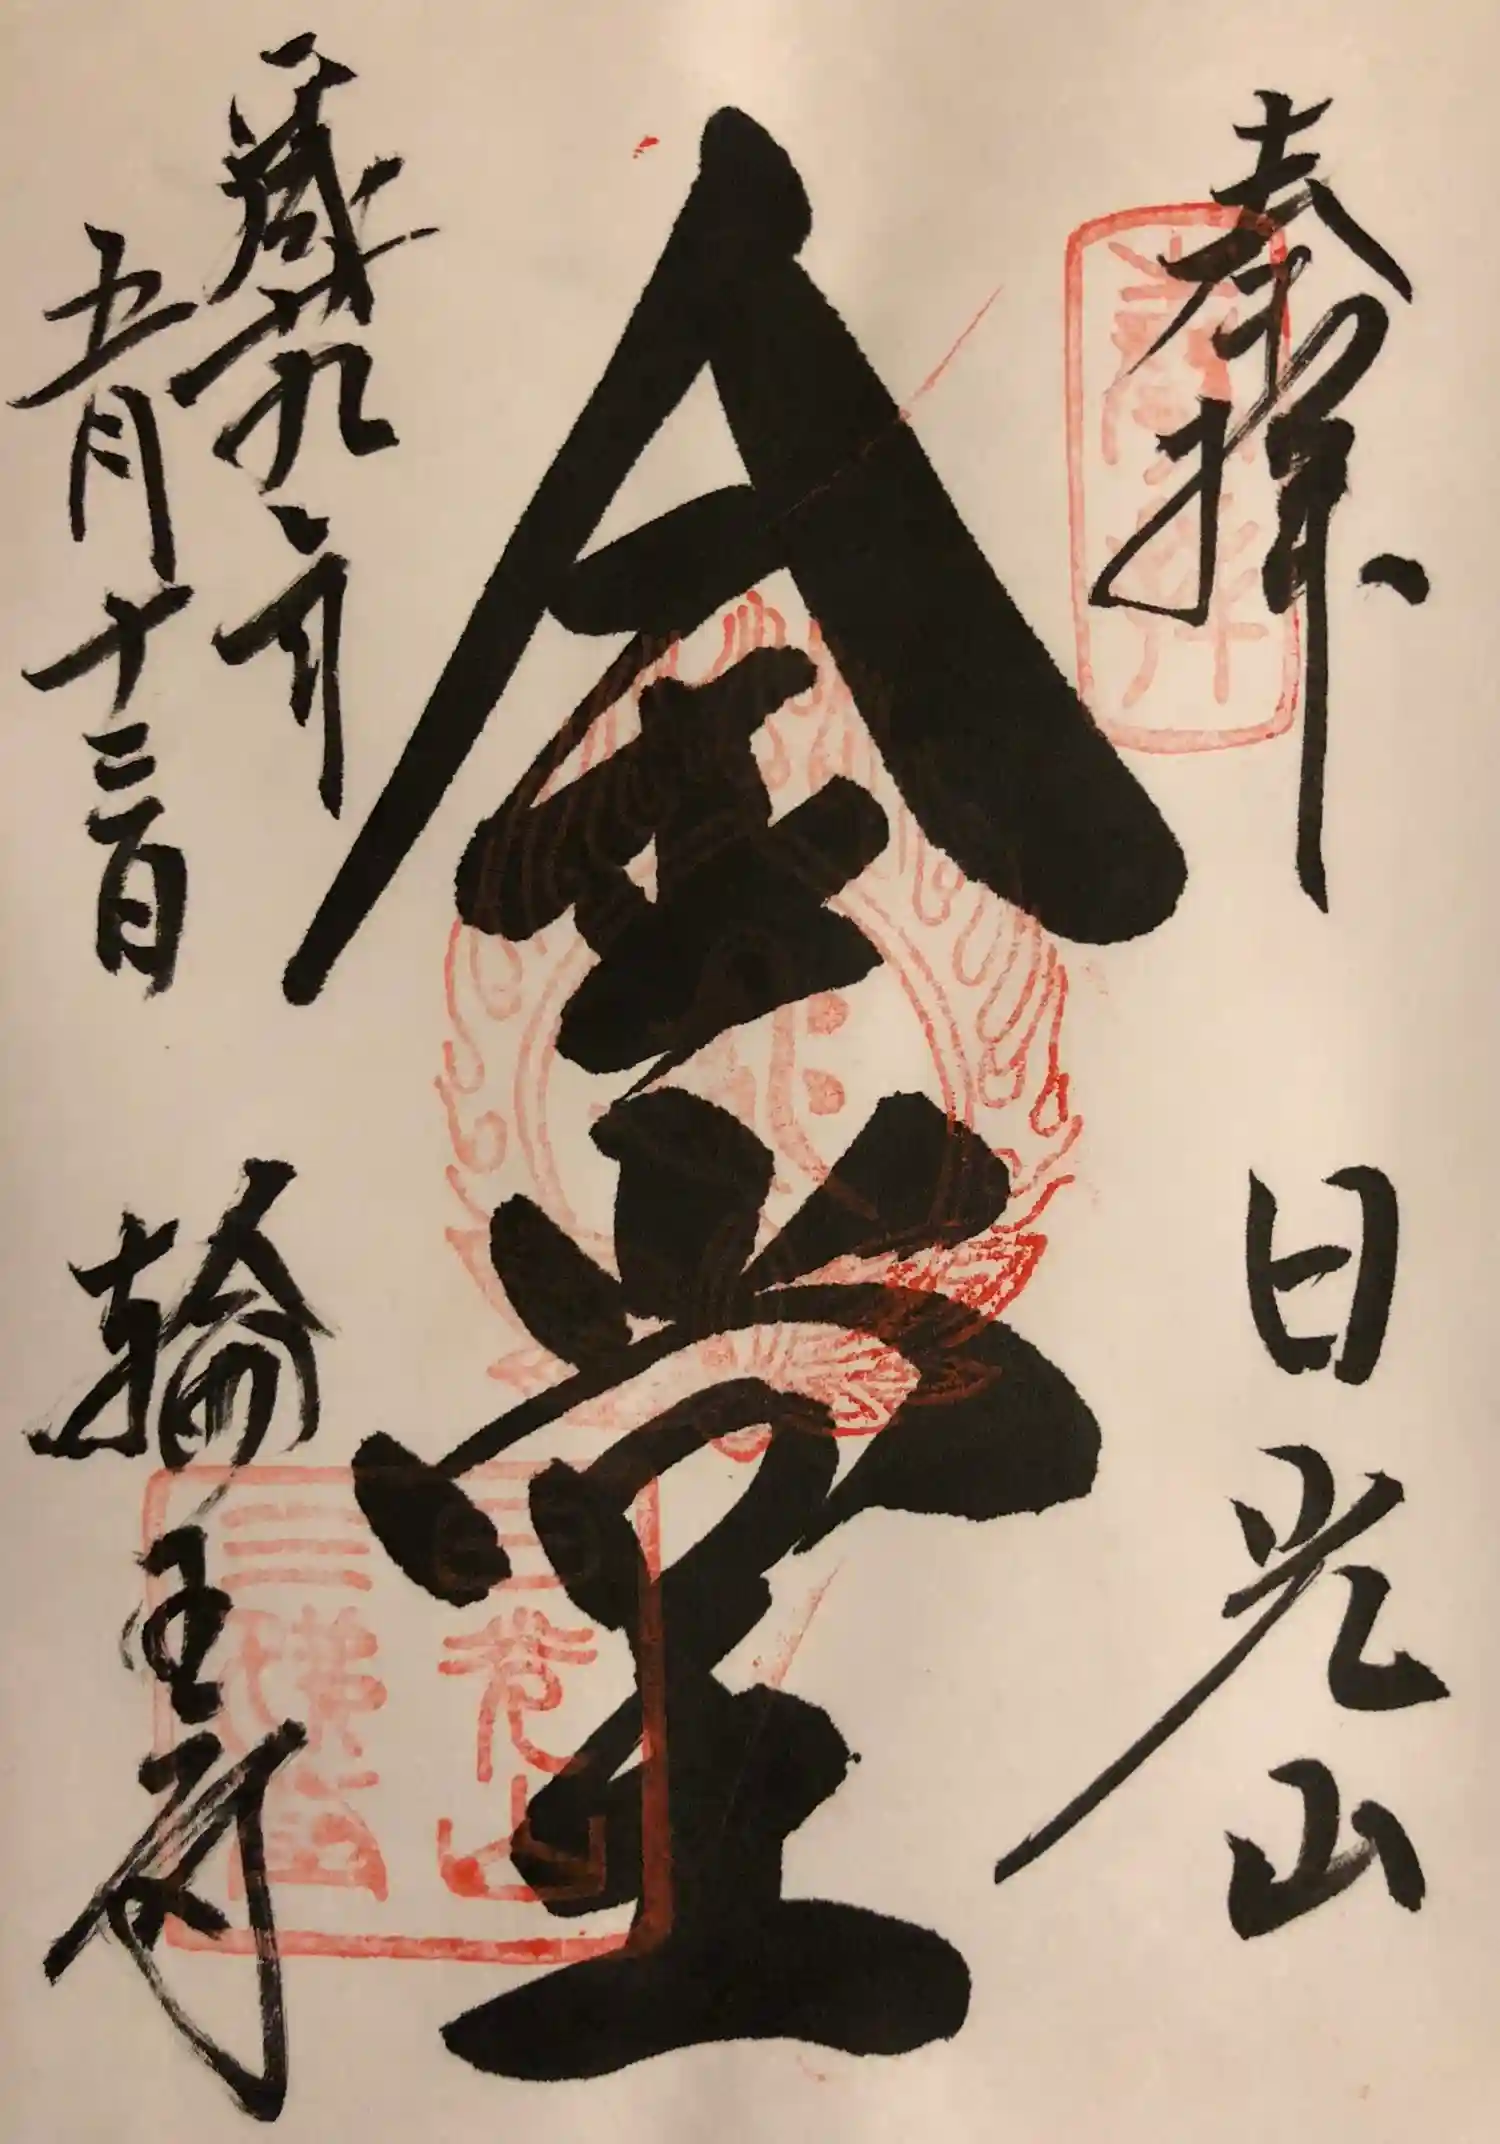 奉拝
日光山
金堂
平成廿九年
五月十三日
輪王寺
日光山
三佛堂